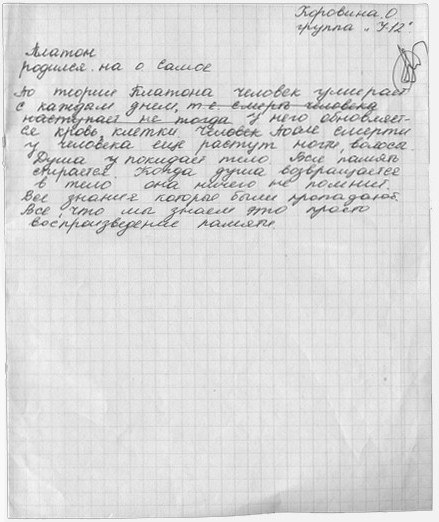 Коровина. О
группа "У-12"
Платон
родился. на о. самое
По теории Платона человек умирает
с каждам днем, т.е. смерть человека
наступает не тогда у него обновляет-
ся кровь, клетки. Человек после смерти
у человека еще растут ногти, волоса.
Душа у покидает тело. Вся память
стирается. Когда душа возвращается
в тело она ничего не помнит.
Все знания которые были пропадают.
Все, что мы знаем это просто
воспроизведение памяти.